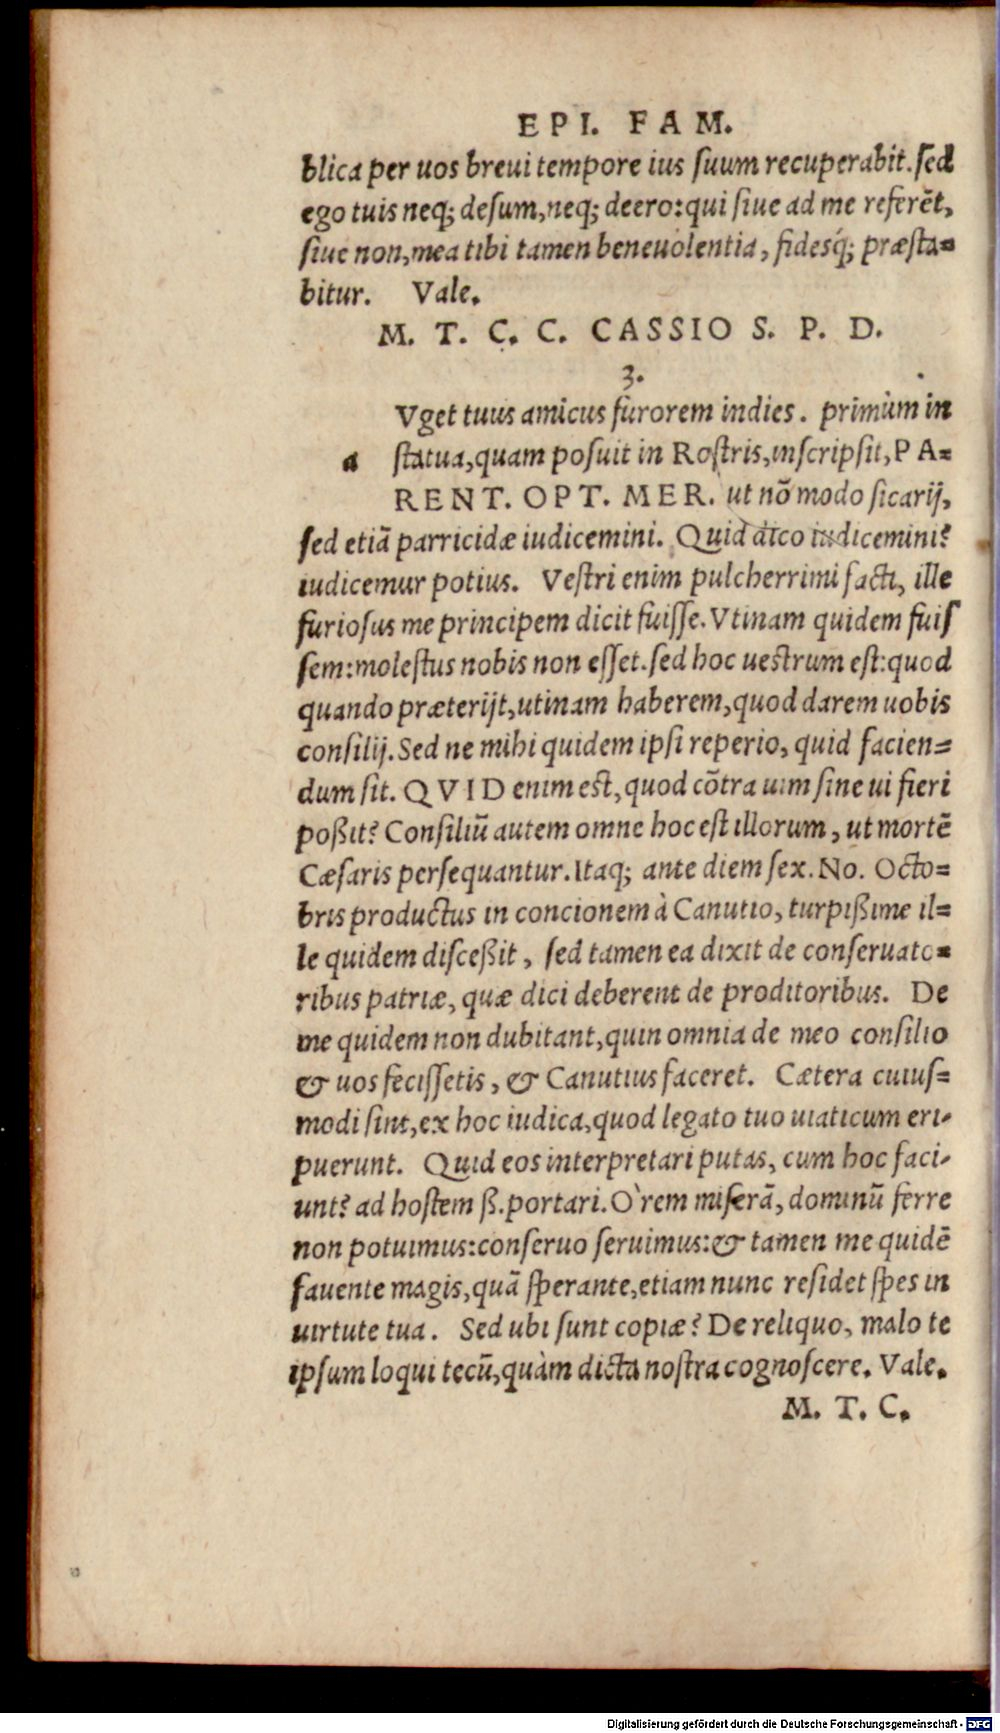 EPI. FAM.
blica per uos breui tempore ius suum recuperabit. sed
ego tuis neq; desum, neq; deero: qui siue ad me referēt,
siue non, mea tibi tamen beneuolentia, fidesq́; præsta=
bitur. Vale.
M. T. C. C. CASSIO S. P. D.
3.
Vget tuus amicus furorem indies. primùm in
a statua, quam posuit in Rostris, inscripsit, PA=
RENT. OPT. MER. ut nō modo sicarij,
sed etiā parricidæ iudicemini. Quid dico iudicemini?
iudicemur potius. Vestri enim pulcherrimi facti, ille
furiosus me principem dicit fuisse. Vtinam quidem fuis
sem: molestus nobis non esset. sed hoc uestrum est: quod
quando præterijt, utinam haberem, quod darem uobis
consilij. Sed ne mihi quidem ipsi reperio, quid facien=
dum sit. QVID enim est, quod cōtra uim sine ui fieri
poßit? Consiliū autem omne hoc est illorum, ut mortē
Cæsaris persequantur. Itaq; ante diem sex. No. Octo=
bris productus in concionem à Canutio, turpißime il=
le quidem disceßit, sed tamen ea dixit de conseruato=
ribus patriæ, quæ dici deberent de proditoribus. De
me quidem non dubitant, quin omnia de meo consilio
& uos fecissetis, & Canutius faceret. Cætera cuius=
modi sint, ex hoc iudica, quod legato tuo uiaticum eri-
puerunt. Quid eos interpretari putas, cum hoc faci-
unt? ad hostem ß. portari. O` rem miserā, dominū ferre
non potuimus: conseruo seruimus: & tamen me quidē
fauente magis, quā sperante, etiam nunc residet spes in
uirtute tua. Sed ubi sunt copiæ? De reliquo, malo te
ipsum loqui tecū, quàm dicta nostra cognoscere. Vale.
M. T. C.
Digitalisierung gefördert durch die Deutsche Forschungsgemeinschaft - DFG